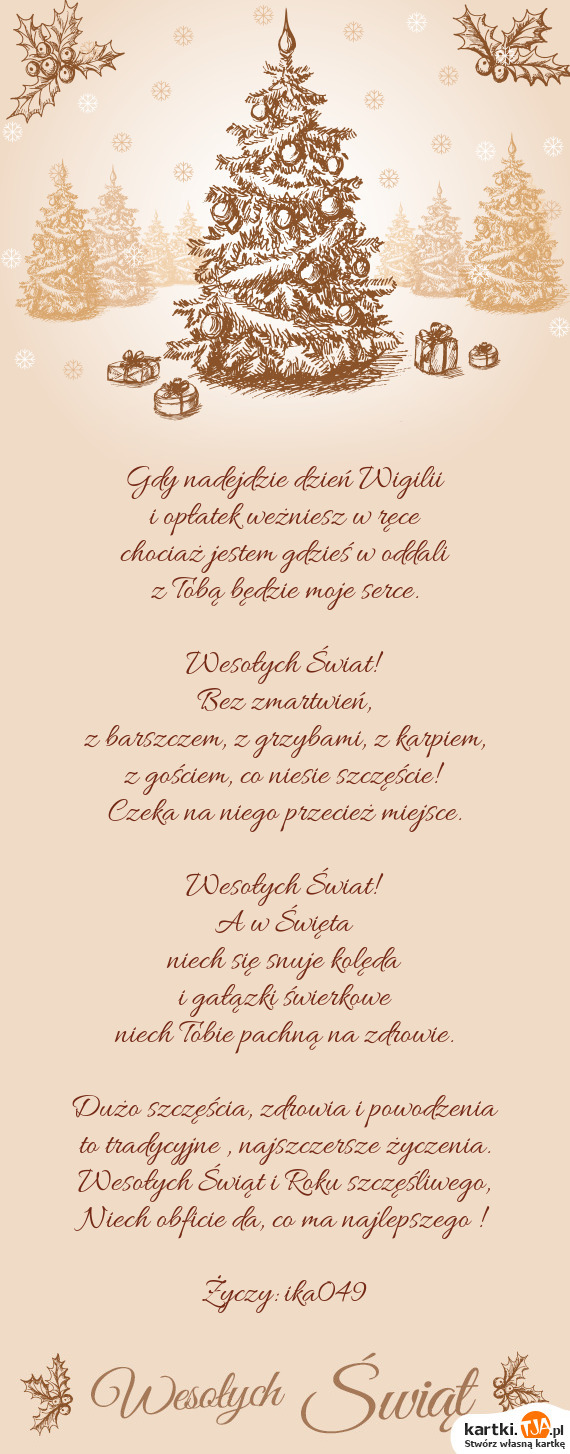 Gdy nadejdzie dzień Wigilii
i opłatek weżniesz w ręce
chociaż jestem gdzieś w oddali
z Tobą będzie moje serce.
Wesołych Świat!
Bez zmartwień,
z barszczem, z grzybami, z karpiem,
z gościem, co niesie szczęście!
Czeka na niego przecież miejsce.
Wesołych Świat!
A w Święta
niech się snuje kolęda
i gałązki świerkowe
niech Tobie pachną na zdrowie.
Dużo szczęścia, zdrowia i powodzenia
to tradycyjne , najszczersze życzenia.
Wesołych Świąt i Roku szczęśliwego,
Niech obficie da, co ma najlepszego !
Życzy: ika049
Wesołych Świąt
kartki.TJA.pl
Stwórz własną kartkę